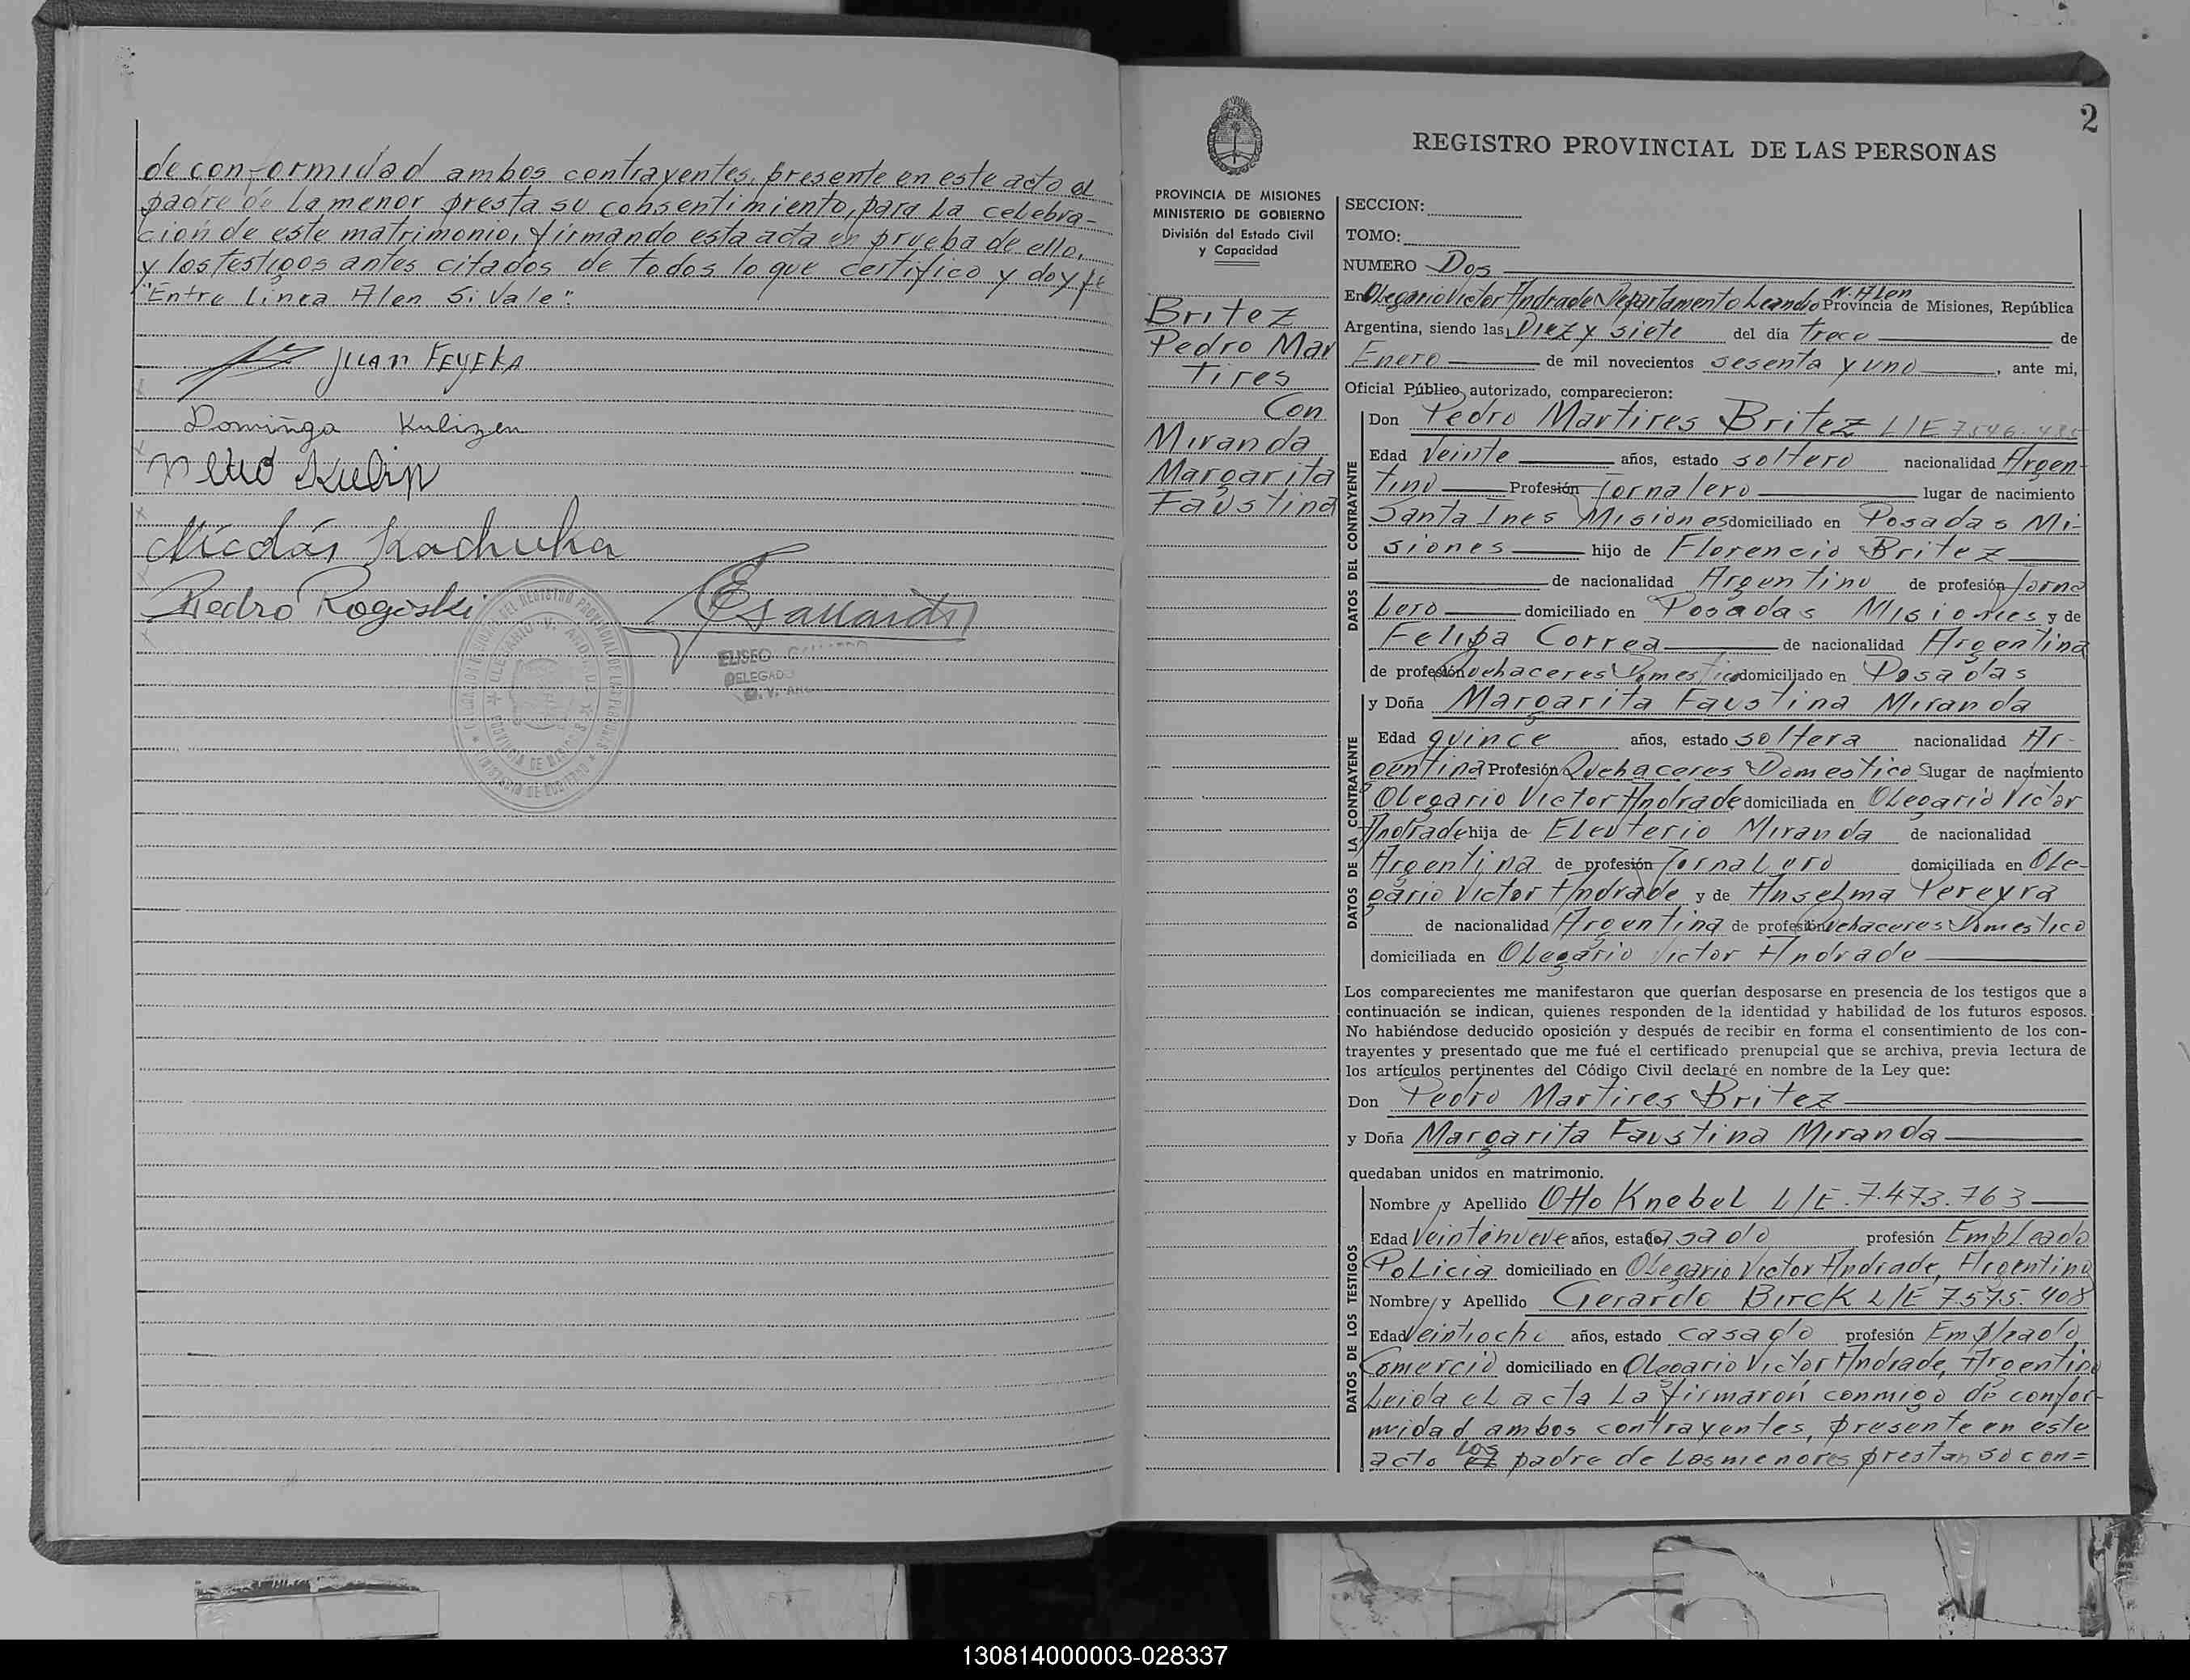 de conformidad ambos contrayentes, presente en este acto el
padre de la menor presta su consentimiento, para la celebra-
cion de este matrimonio, firmando esta acta en prueba de ello,
y los testigos antes citados de todos lo que certifico y doy fe
"Entre linea Alen Si Vale".
JUAN FEYEKA
Dominga Kulizen
Kubin
Nicolás Kachuka
Pedro Rogoski
ELISEO
DELEGADO
2
REGISTRO PROVINCIAL DE LAS PERSONAS
PROVINCIA DE MISIONES
MINISTERIO DE GOBIERNO
División del Estado Civil
y Capacidad
Britez
Pedro Mar
tires
Con
Miranda
Margarita
Faustina
SECCION:
TOMO:
NUMERO Dos
En Olegario Victor Andrade Departamento Leandro N. Alen Provincia de Misiones, República
Argentina, siendo las Diez y siete del día trece de
Enero de mil novecientos sesenta y uno, ante mi,
Oficial Público autorizado, comparecieron:
DATOS DEL CONTRAYENTE
Don Pedro Martires Britez L/E 7546.
Edad Veinte años, estado soltero nacionalidad Argen-
tino Profesión Jornalero lugar de nacimiento
Santa Ines Misiones domiciliado en Posadas Mi-
siones hijo de Florencio Britez
de nacionalidad Argentino de profesión Jorna
lero domiciliado en Posadas Misiones y de
Felipa Correa de nacionalidad Argentina
de profesión Quehaceres Domestico domiciliado en Posadas
DATOS DE LA CONTRAYENTE
y Doña Margarita Faustina Miranda
Edad quince años, estado soltera nacionalidad Ar-
gentina Profesión Quehaceres Domestico lugar de nacimiento
Olegario Victor Andrade domiciliada en Olegario Victor
Andrade hija de Eleuterio Miranda de nacionalidad
Argentina de profesión Jornalero domiciliada en Ole-
gario Victor Andrade y de Anselma Pereyra
de nacionalidad Argentina de profesión Quehaceres Domestico
domiciliada en Olegario Victor Andrade
Los comparecientes me manifestaron que querían desposarse en presencia de los testigos que a
continuación se indican, quienes responden de la identidad y habilidad de los futuros esposos.
No habiéndose deducido oposición y después de recibir en forma el consentimiento de los con-
trayentes y presentado que me fué el certificado prenupcial que se archiva, previa lectura de
los artículos pertinentes del Código Civil declaré en nombre de la Ley que:
Don Pedro Martires Britez
y Doña Margarita Faustina Miranda
quedaban unidos en matrimonio.
DATOS DE LOS TESTIGOS
Nombre y Apellido Otto Knebel L/E. 7.473.763
Edad Veintenueve años, estado casado profesión Empleado
Policia domiciliado en Olegario Victor Andrade, Argentino
Nombre y Apellido Gerardo Birck L/E 7.575.408
Edad Veintiocho años, estado casado profesión Empleado
Comercio domiciliado en Olegario Victor Andrade, Argentino
Leida el acta la firmaron conmigo de confor-
midad ambos contrayentes, presente en este
acto los padre de los menores prestan su con=
130814000003-028337